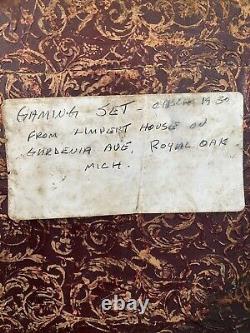 GAMING SET - CIRCA 1930
FROM LIMPERT HOUSE ON
GARDENIA AVE, ROYAL OAK
MICH.